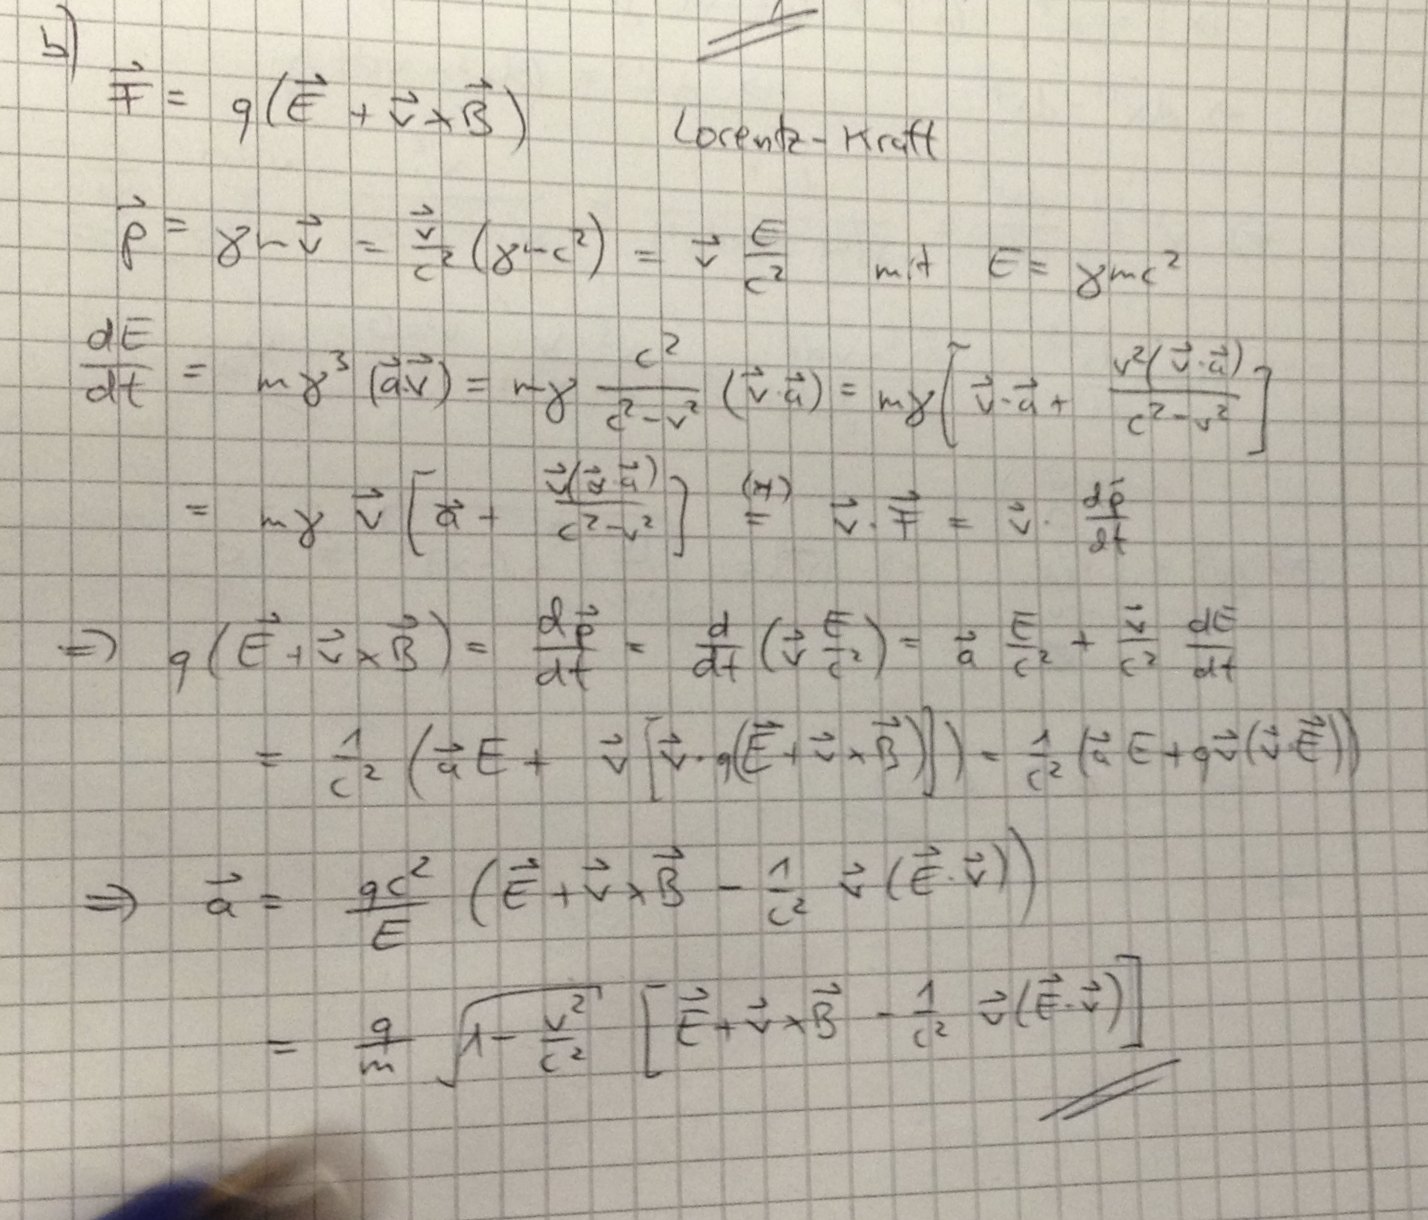 b)
F⃗ = q(E⃗ + v⃗ × B⃗) Lorentz-Kraft
p⃗ = γmv⃗ = v⃗/c² (γmc²) = v⃗ E/c² mit E = γmc²
dE/dt = mγ³(a⃗v⃗) = mγ c²/(c²-v²) (v⃗·a⃗) = mγ[v⃗·a⃗ + v²(v⃗·a⃗)/(c²-v²)]
= mγ v⃗ [a⃗ + v⃗(v⃗·a⃗)/(c²-v²)] (*)= v⃗·F⃗ = v⃗· dp⃗/dt
⇒ q(E⃗ + v⃗ × B⃗) = dp⃗/dt = d/dt (v⃗ E/c²) = a⃗ E/c² + v⃗/c² dE/dt
= 1/c² (a⃗ E + v⃗ [v⃗·q(E⃗ + v⃗ × B⃗)]) = 1/c² (a⃗ E + qv⃗(v⃗·E⃗))
⇒ a⃗ = qc²/E (E⃗ + v⃗ × B⃗ - 1/c² v⃗ (E⃗·v⃗))
= q/m √(1 - v²/c²) [E⃗ + v⃗ × B⃗ - 1/c² v⃗(E⃗·v⃗)]